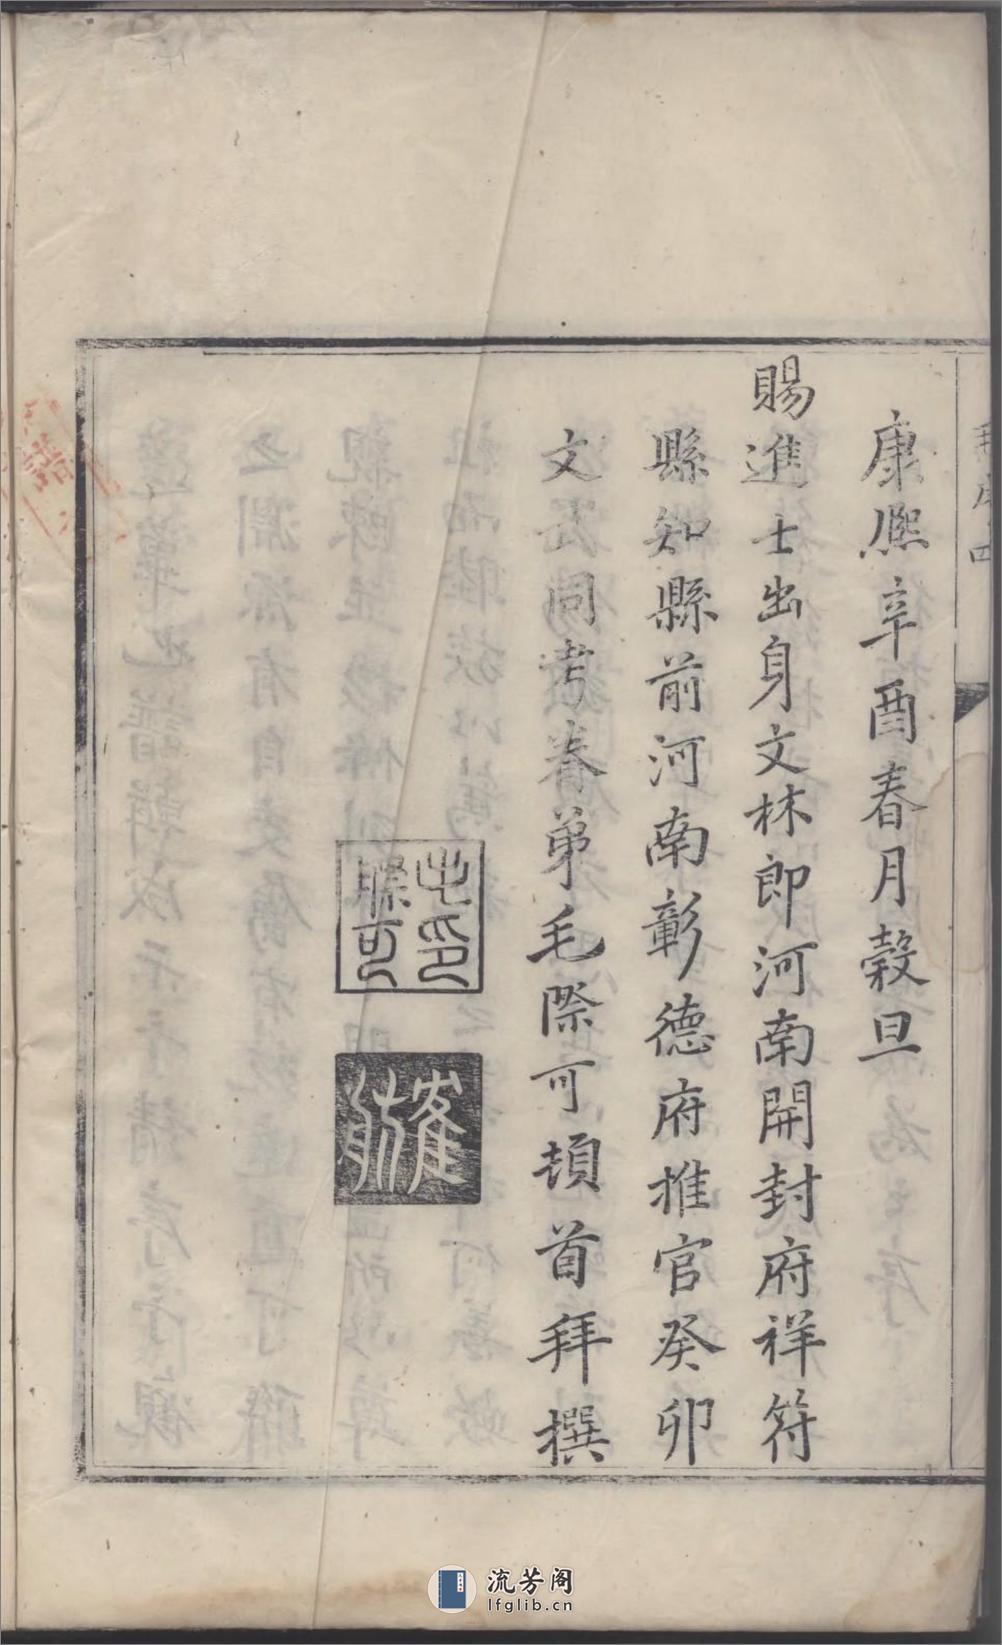 毛序 四
康熙辛酉春月穀旦
賜進士出身文林郎河南開封府祥符
縣知縣前河南彰德府推官癸卯
文武同考眷弟毛際可頓首拜撰
際可之印
流芳阁
lfglib.cn